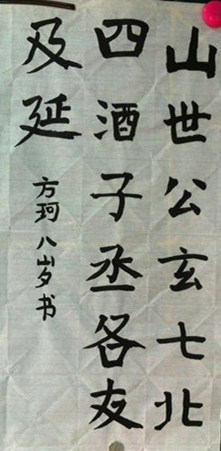 山世公玄七北
四酒子丞各友
及延
方珂八岁书